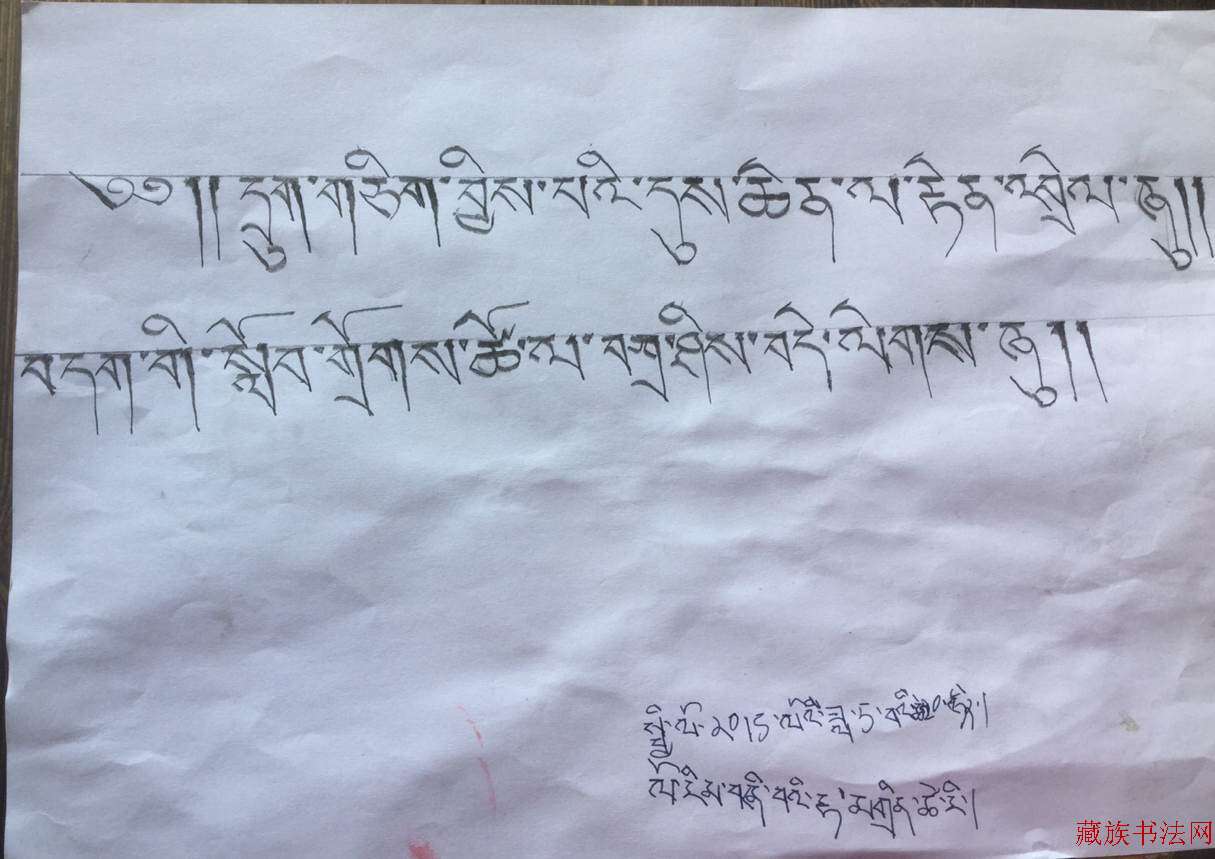 ༄༅།། དྲུག་གཅིག་བྱིས་པའི་དུས་ཆེན་ལ་རྟེན་འབྲེལ་ཞུ།།
བདག་གི་སློབ་གྲོགས་ཚོ་ལ་བཀྲ་ཤིས་བདེ་ལེགས་ཞུ།།
སྤྱི་ལོ་༢༠༡༥་ལོའི་ཟླ་༥་
ལོ་རིམ་བཞི་བའི་རྟ་མགྲིན་ཚེ་རི།
藏族书法网